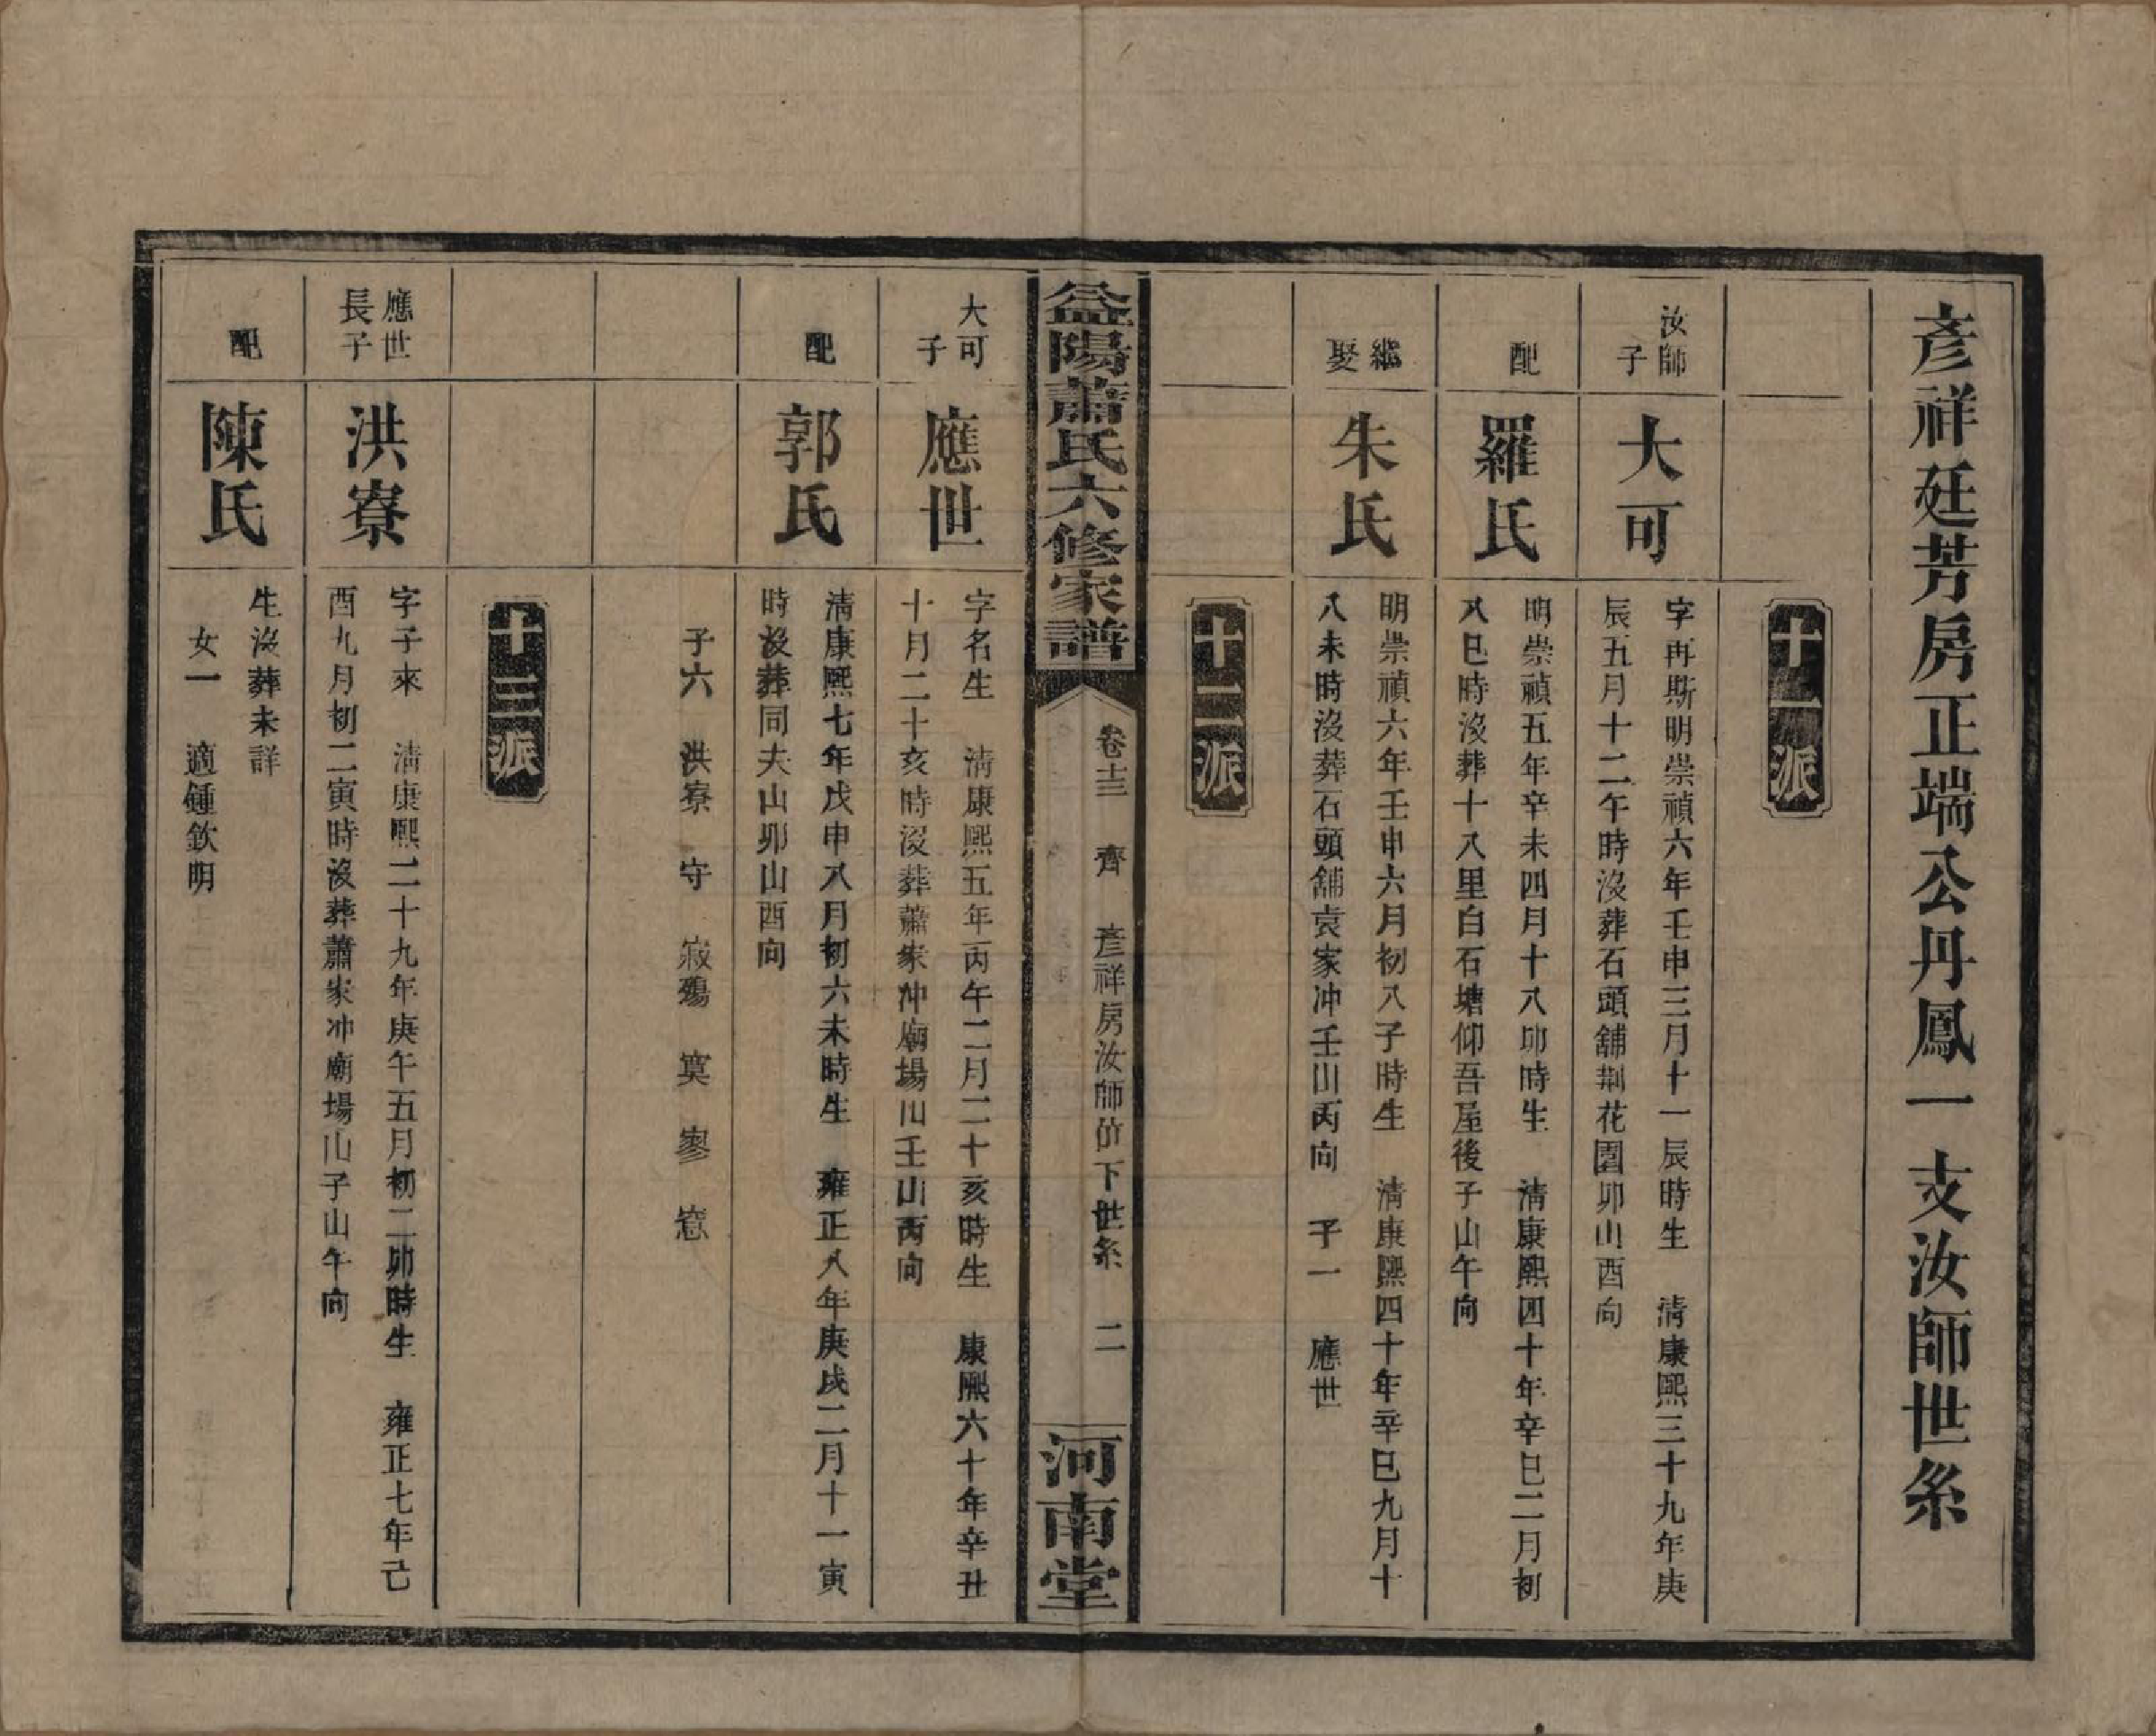 彥祥廷芳房正端公丹鳳一支汝師世系
十一派
汝師
子
大可
字再斯明崇禎六年壬申三月十一辰時生　清康熙三十九年庚
辰五月十二午時沒葬石頭舖荆花園卯山酉向
配
羅氏
明崇禎五年辛未四月十八卯時生　清康熙四十年辛巳二月初
八巳時沒葬十八里白石塘仰吾屋後子山午向
繼
娶
朱氏
明崇禎六年壬申六月初八子時生　清康熙四十年辛巳九月十
八未時沒葬石頭舖袁家冲壬山丙向　子一　應世
十二派
益陽蕭氏六修家譜
卷十三　齊　彥祥房汝師位下世系　二
河南堂
大可
子
應世
字名生　清康熙五年丙午二月二十亥時生　康熙六十年辛丑
十月二十亥時沒葬蕭家冲廟場山壬山丙向
配
郭氏
清康熙七年戊申八月初六未時生　雍正八年庚戌二月十一寅
時沒葬同夫山卯山酉向
子六　洪寮　守　寂殤　寞　寥　窓
十三派
應世
長子
洪寮
字子來　清康熙二十九年庚午五月初二卯時生　雍正七年己
酉九月初二寅時沒葬蕭家冲廟場山子山午向
配
陳氏
生沒葬未詳
女一　適鍾欽明